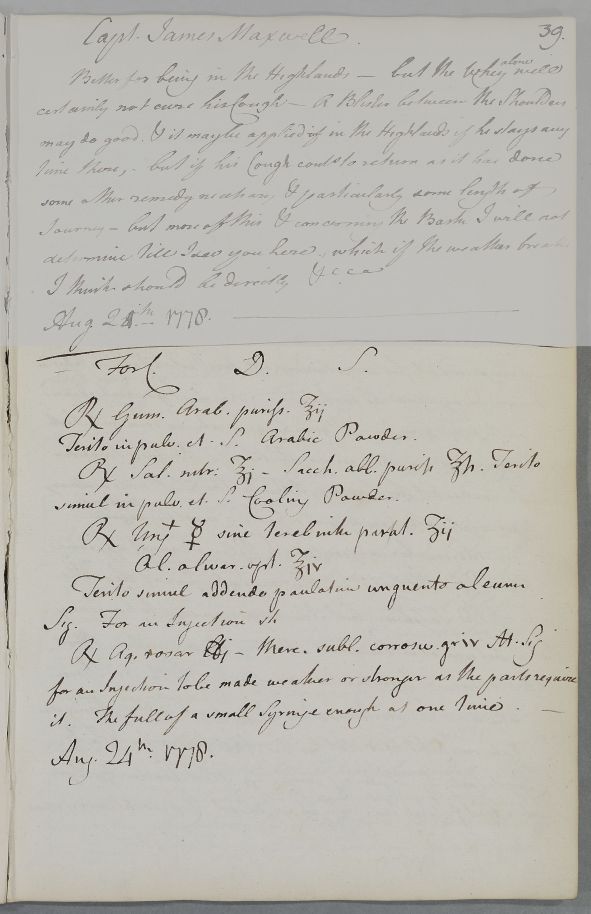 39.
Capt. James Maxwell.
Better for being in the Highlands – but the Whey alone will
certainly not cure his Cough – A Blister between the Shoulders
may do good. & it may be applied if in the Highlands if he stays any
time there, – but if his Cough could to return as it has done
some other remedy necessary & particularly some length of
Journey – but more off this & concerning the Bark I will not
determine till I see you here, which if the weather breaks
I think should be directly &c c a
Aug 24th 1778.
For C. D. S.
℞ Gum. Arab. puriss. ℥ij
Terito in pulv. et S. Arabic Powder.
℞ Sal. nitr. ℥j – Sacch. alb. puriss ℥ſs. Terito
simul in pulv. et S. Cooling Powder.
℞ Ungt ☿ sine terebinth parat. ℥ij
Ol. olivar. opt. ℥iv
Terito simul addendo paulatim unguento oleum
Sig. For an Injection
℞ Aq. rosar ℔j – Merc. subl. corrosiv. gr iv Ft. Sig
for an Injection to be made weaker or stronger as the parts require
it. The full of a small Syringe enough at one time. –
Aug. 24th. 1778.